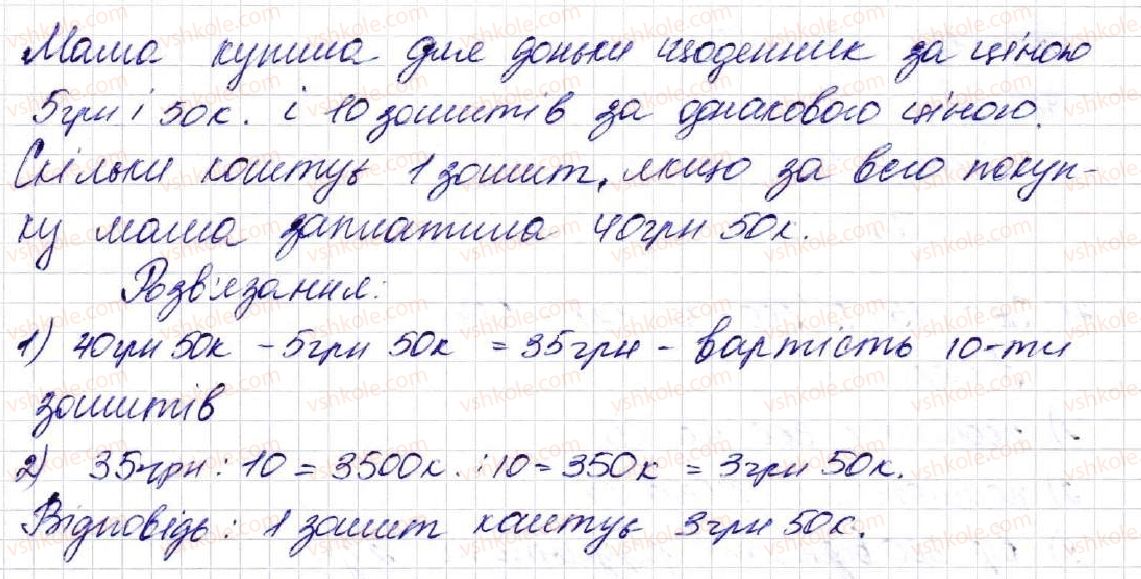 Мама купила для доньки щоденник за ціною
5грн і 50к. і 10 зошитів за однаковою ціною.
Скільки коштує 1 зошит, якщо за всю покуп-
ку мама заплатила 40грн 50к.
Розв'язання:
1) 40грн 50к - 5грн 50к = 35грн - вартість 10-ти
зошитів
2) 35грн : 10 = 3500к. : 10 = 350к = 3грн 50к.
Відповідь: 1 зошит коштує 3грн 50к.